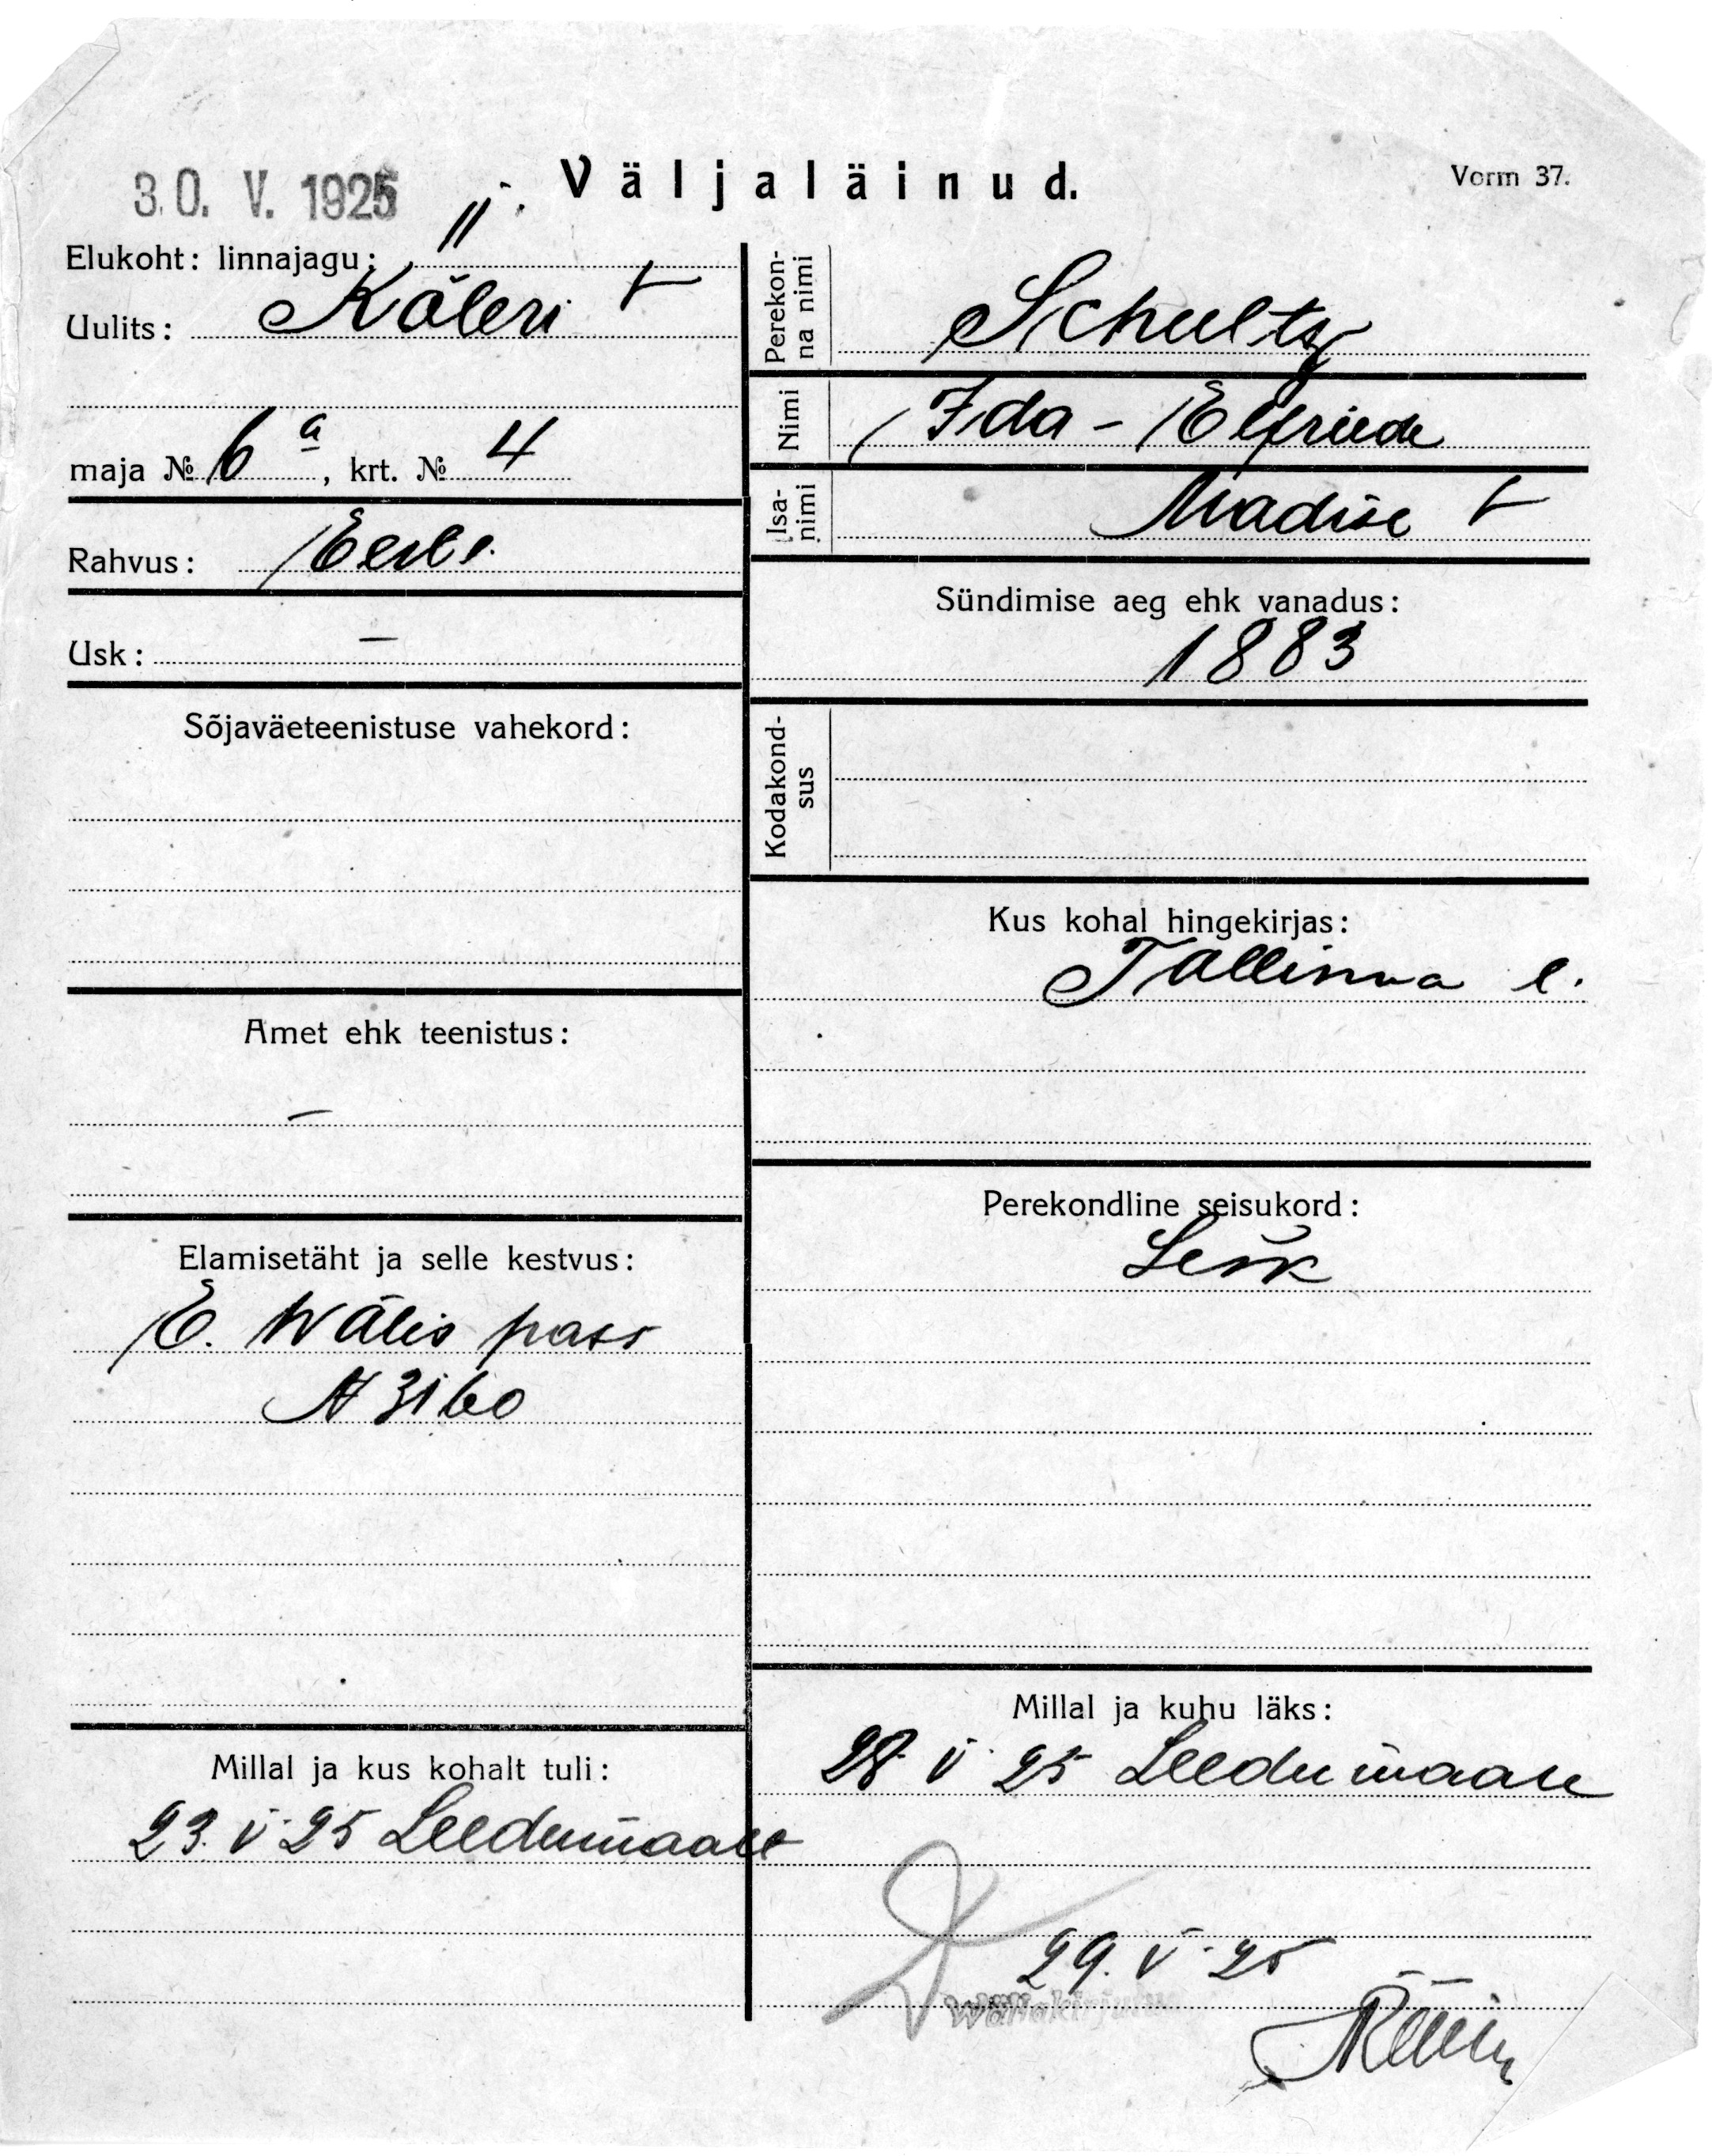 30. V. 1925
Väljaläinud.
Vorm 37.
Elukoht: linnajagu: II
Uulits: Köleri
maja № 6a, krt. № 4
Rahvus: Eesti
Usk: —
Sõjaväeteenistuse vahekord:
Amet ehk teenistus:
—
Elamisetäht ja selle kestvus:
E. Wälis pass
N 3160
Millal ja kus kohalt tuli:
23. V 25 Leedumaalt
Perekonna nimi
Schultz
Nimi
Ida - Elfriede
Isanimi
Madise
Sündimise aeg ehk vanadus:
1883
Kodakondsus
Kus kohal hingekirjas:
Tallinna l.
Perekondline seisukord:
Lesk
Millal ja kuhu läks:
28 V 25 Leedumaale
29. V 25